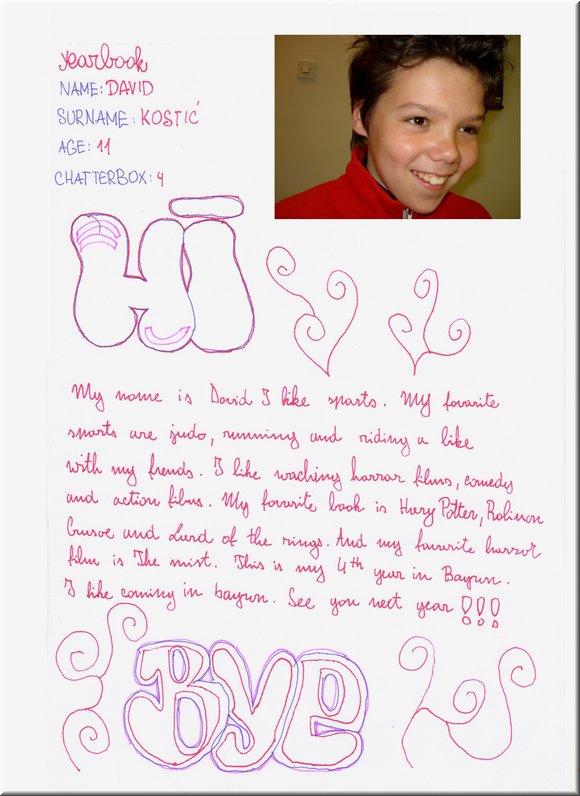 yearbook
NAME: DAVID
SURNAME: KOSTIĆ
AGE: 11
CHATTERBOX: 4
HI
My name is David I like sports. My favorite
sports are judo, running and riding a bike
with my frends. I like waching horror films, comedy
and action films. My favorite book is Harry Potter, Robinson
Crusoe and Lord of the rings. And my favorite horror
film is The mist. This is my 4th year in Baywn.
I like coming in baywn. See you next year !!!
Bye